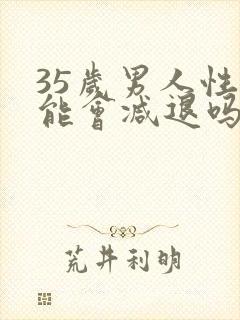 35歲男人性
能會減退嗎
荒井利明